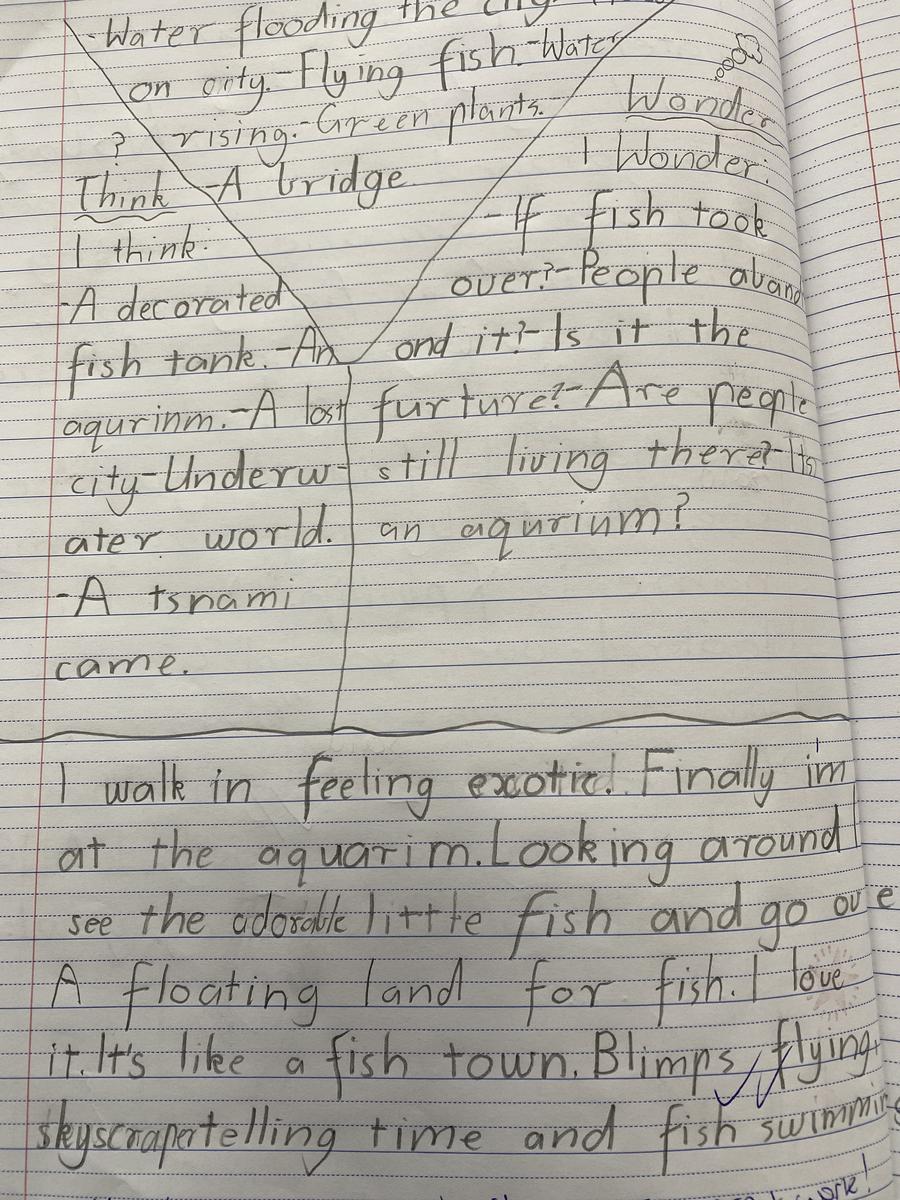 -Water flooding the city.
on city.-Flying fish.-Water
? rising.-Green plants.
-A bridge
Think
I think:
-A decorated
fish tank.-An
aqurinm.-A lost
city-Underw-
ater world.
-A tsnami
came.
Wonder
I Wonder:
-If fish took
over?-People aband
ond it?-Is it the
furture?-Are people
still living there?-Its
an aqurium?
I walk in feeling exotic! Finally i'm
at the aquarim.Looking around I
see the adorable little fish and go ove
A floating land for fish.I love
it.It's like a fish town.Blimps flying,
skyscrapertelling time and fish swimming